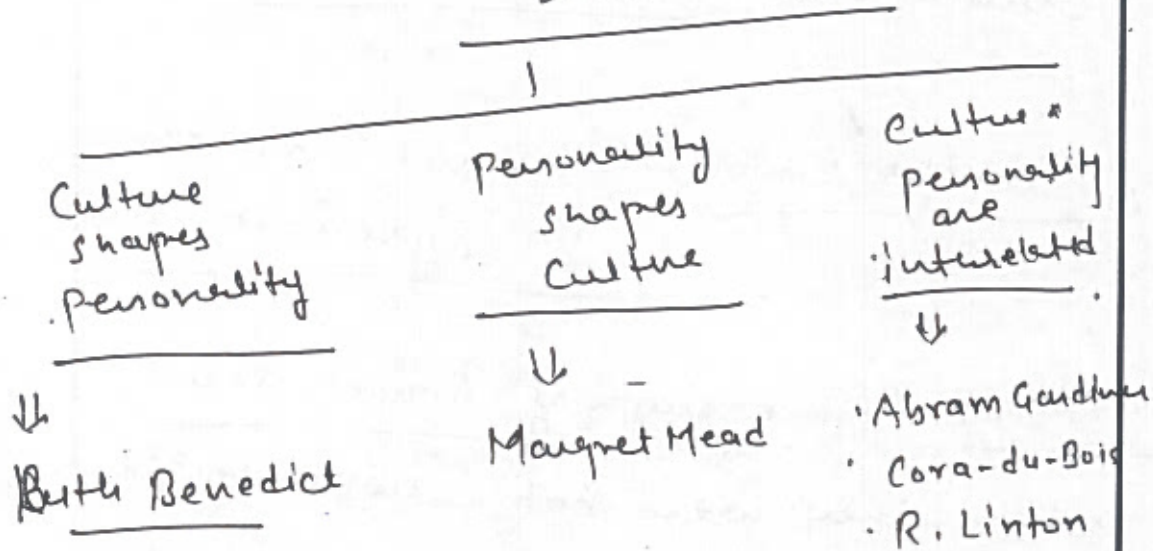 Culture
shapes
personality
Ruth Benedict
personality
shapes
Culture
Margret Mead
Culture
personality
are
interelated
Abram Gardiner
Cora-du-Bois
R. Linton